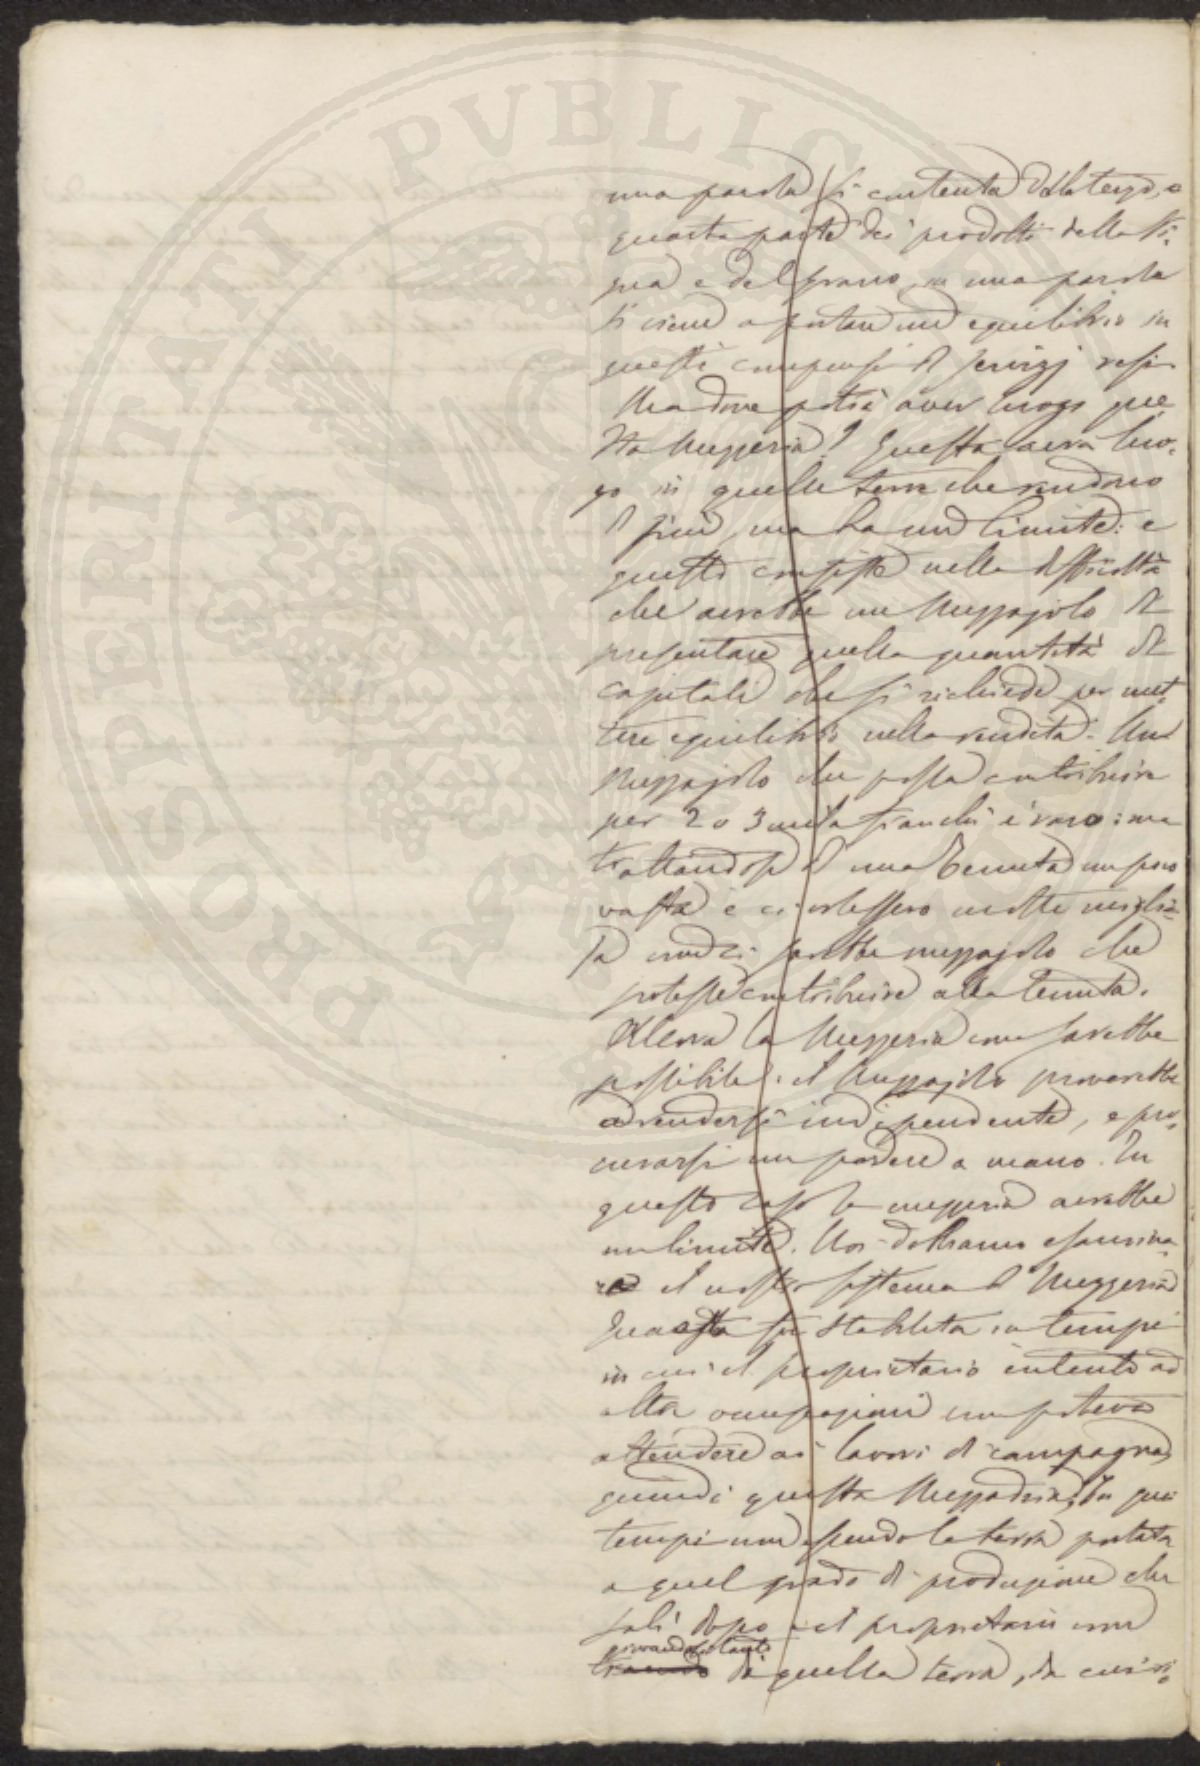 PROSPERITATI PVBLICAE
una parola si contenta della terza, o
quarta parte dei prodotti della Vi-
gna e del grano, in una parola
si viene a portare un equilibrio in
questi compensi di servizj resi.
Ma dove potrà aver luogo que
sta Mezzeria? Questa avrà luo-
go in quelle terre che rendono
di più, ma ha un limite: e
questo consiste nella difficoltà
che avrebbe un Mezzajolo di
presentare quella quantità di
capitali che si richiede per met
tere equilibrio nella rendita. Un
Mezzajolo che possa contribuire
per 2 o 3 mila franchi è raro: ma
trattandosi di una Tenuta un poco
vasta e ci volessero molte miglia-
ja non ci sarebbe mezzajolo che
potesse contribuire alla tenuta.
Allora la Mezzeria non sarebbe
possibile: il Mezzajolo proverebbe
a rendersi indipendente, e pro-
curarsi un podere a mano. In
questo caso la mezzeria avrebbe
un limite. Noi dobbiamo esamina-
re il nostro sistema di Mezzeria
Questa fu stabilita in tempi
in cui il proprietario intento ad
altre occupazioni non poteva
attendere ai lavori di campagna
quindi questa Mezzadria; In quei
tempi non essendo la terra portata
a quel grado di produzione che
salì dopo il proprietario non
di quella terra, da cui ri-